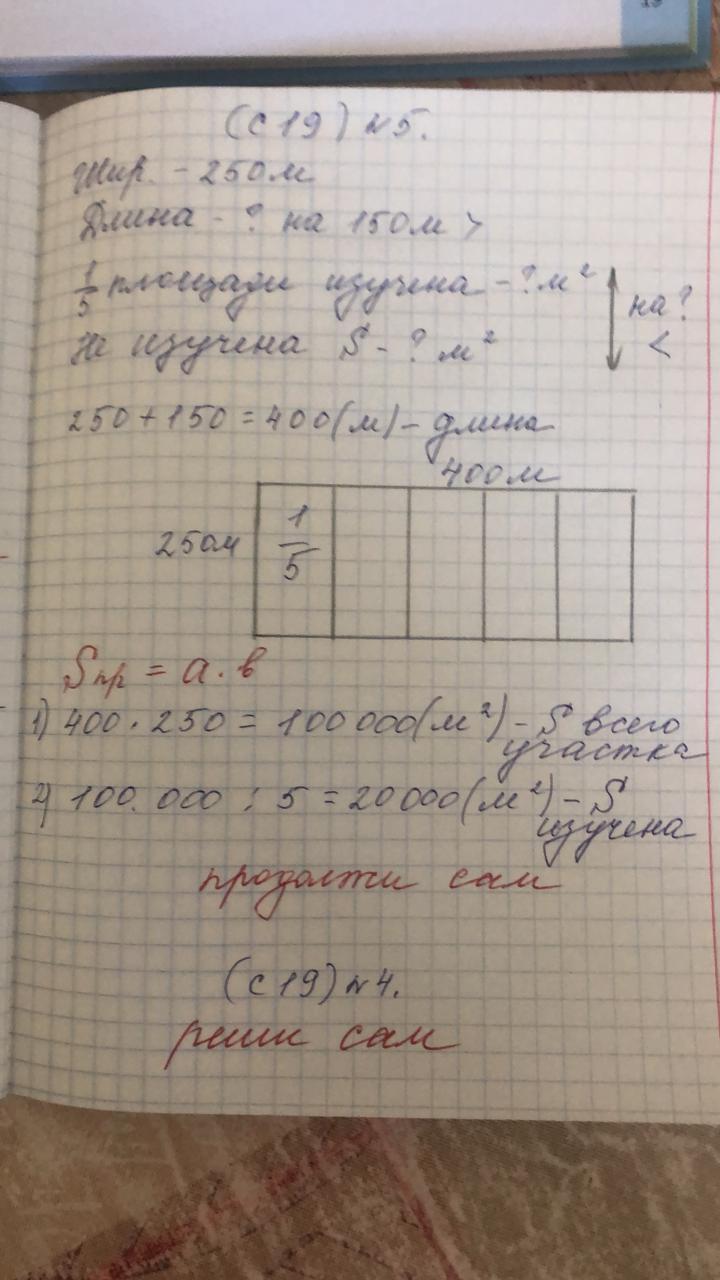 19
(с 19) №5.
Шир. - 250м
Длина - ? на 150м >
1/5 площади изучена - ? м²
на ?
Не изучена S - ? м²
<
250 + 150 = 400(м) - длина
400м
250м
1/5
Sпр = а · в
1) 400 · 250 = 100 000(м²) - S всего
участка
2) 100.000 : 5 = 20 000(м²) - S
изучена
продолжи сам
(с 19) №4.
реши сам